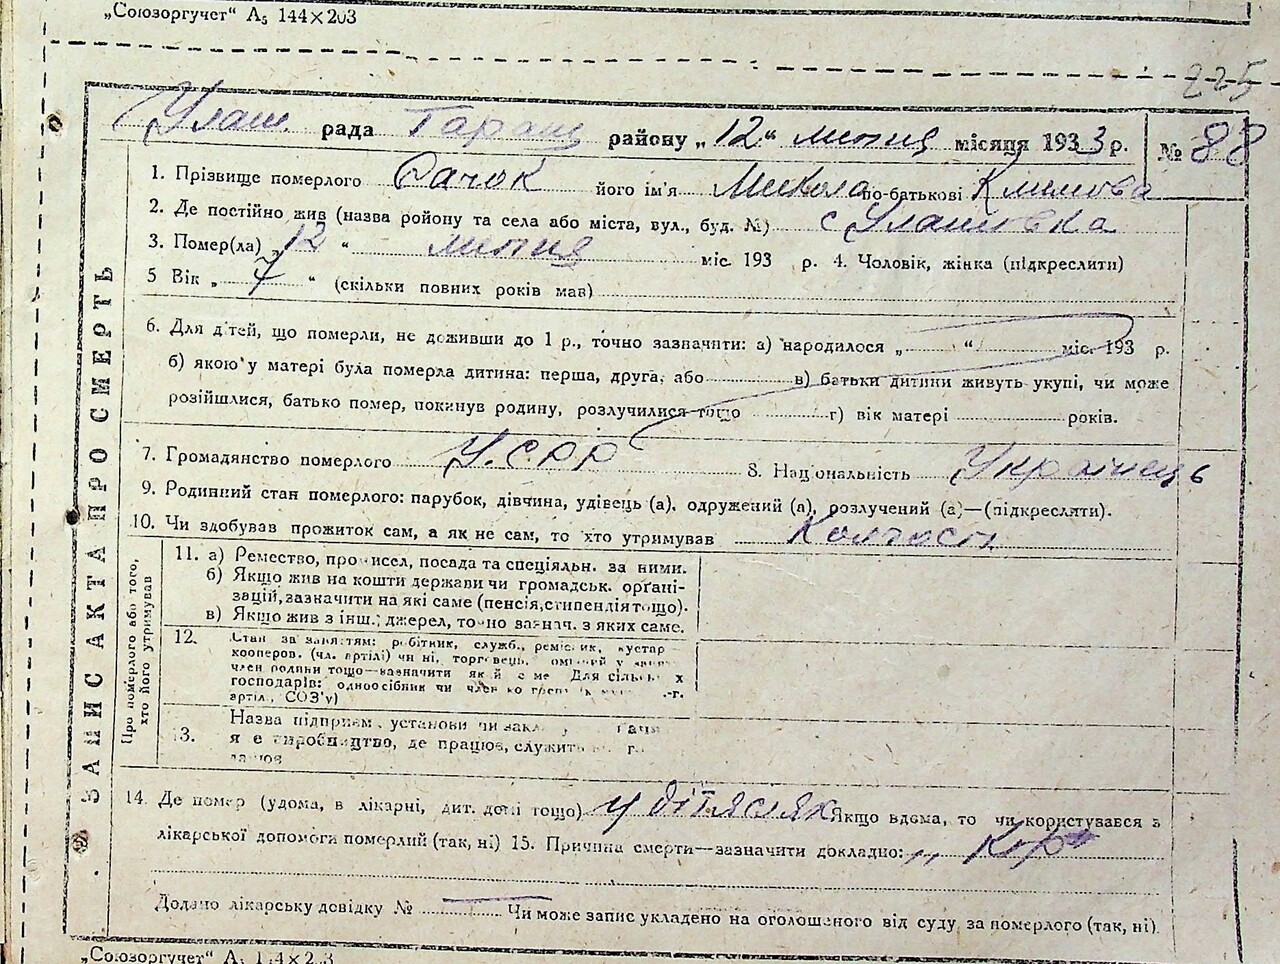 „Союзоргучет“ А₅ 144×203
225
Улаш. рада Таращ району „12“ липня місяця 1933 р. № 88
1. Прізвище померлого Рачок його ім'я Микола по-батькові Климова
2. Де постійно жив (назва району та села або міста, вул., буд. №) с Улашовка
3. Помер(ла) „12“ липня міс. 193 р. 4. Чоловік, жінка (підкреслити)
5 Вік „ 7 “ (скільки повних років мав)
6. Для дітей, що померли, не доживши до 1 р., точно зазначити: а) народилося „ “ міс. 193 р.
б) якою у матері була померла дитина: перша, друга, або в) батьки дитини живуть укупі, чи може
розійшлися, батько помер, покинув родину, розлучилися тощо г) вік матері років.
7. Громадянство померлого У.СРР 8. Національність Українець
9. Родинний стан померлого: парубок, дівчина, удівець (а), одружений (а), розлучений (а)—(підкреслити).
10. Чи здобував прожиток сам, а як не сам, то хто утримував Колгосп
ЗАПИС АКТА ПРО СМЕРТЬ
Про померлого або того, хто його утримував
11. а) Ремество, промисел, посада та спеціяльн. за ними.
б) Якщо жив на кошти держави чи громадськ. орґані-
зацій, зазначити на які саме (пенсія, стипендія тощо).
в) Якщо жив з інш. джерел, точно зазнач. з яких саме.
12. Стан за заняттям: робітник, служб., ремісник, кустар
кооперов. (чл. артілі) чи ні, торговець,
член родини тощо—зазначити Для сільських
господарів: одноосібник чи член
артіл., СОЗ'у)
13. Назва підприєм., установи чи
виробництво, де працює, служить
14. Де помер (удома, в лікарні, дит. домі тощо) у дітяслях Якщо вдома, то чи користувався з
лікарської допомоги померлий (так, ні) 15. Причина смерти—зазначити докладно: „ Кор
Додано лікарську довідку № Чи може запис укладено на оголошеного від суду за померлого (так, ні).
„Союзоргучет“ А₅ 144×203